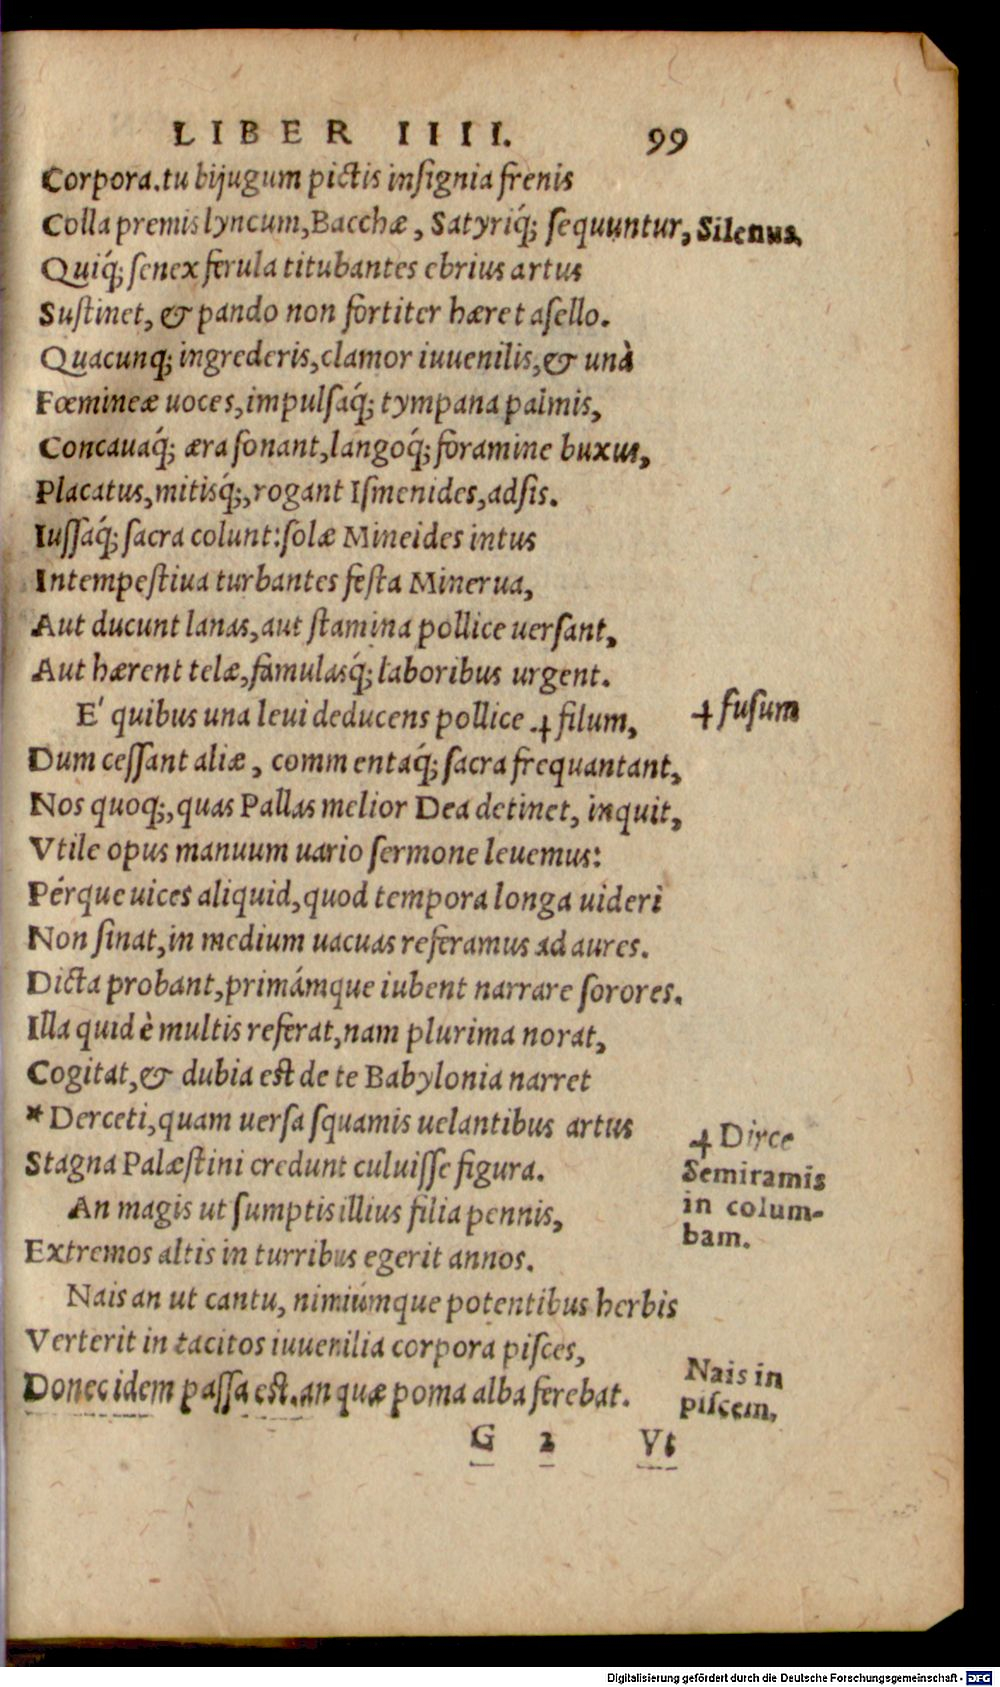 LIBER IIII. 99
Corpora. tu bijugum pictis insignia frenis
Colla premis lyncum, Bacchæ, Satyriq́; sequuntur, Silenus,
Quiq́; senex ferula titubantes ebrius artus
Sustinet, & pando non fortiter hæret asello.
Quacunq; ingrederis, clamor iuuenilis, & unà
Fœmineæ uoces, impulsaq́; tympana palmis,
Concauaq́; æra sonant, langoq́; foramine buxus,
Placatus, mitisq́;, rogant Ismenides, adsis.
Iussaq́; sacra colunt: solæ Mineides intus
Intempestiua turbantes festa Minerua,
Aut ducunt lanas, aut stamina pollice uersant,
Aut hærent telæ, famulasq́; laboribus urgent.
E' quibus una leui deducens pollice ⍭ filum, ⍭ fusum
Dum cessant aliæ, commentaq́; sacra frequantant,
Nos quoq;, quas Pallas melior Dea detinet, inquit,
Vtile opus manuum uario sermone leuemus:
Pérque uices aliquid, quod tempora longa uideri
Non sinat, in medium uacuas referamus ad aures.
Dicta probant, primámque iubent narrare sorores.
Illa quid è multis referat, nam plurima norat,
Cogitat, & dubia est de te Babylonia narret
* Derceti, quam uersa squamis uelantibus artus
Stagna Palæstini credunt culuisse figura.
An magis ut sumptis illius filia pennis,
Extremos altis in turribus egerit annos.
⍭ Dirce
Semiramis
in colum-
bam.
Nais an ut cantu, nimiúmque potentibus herbis
Verterit in tacitos iuuenilia corpora pisces,
Donec idem passa est. an quæ poma alba ferebat.
Nais in
piscem,
G 2 Vt
Digitalisierung gefördert durch die Deutsche Forschungsgemeinschaft - DFG